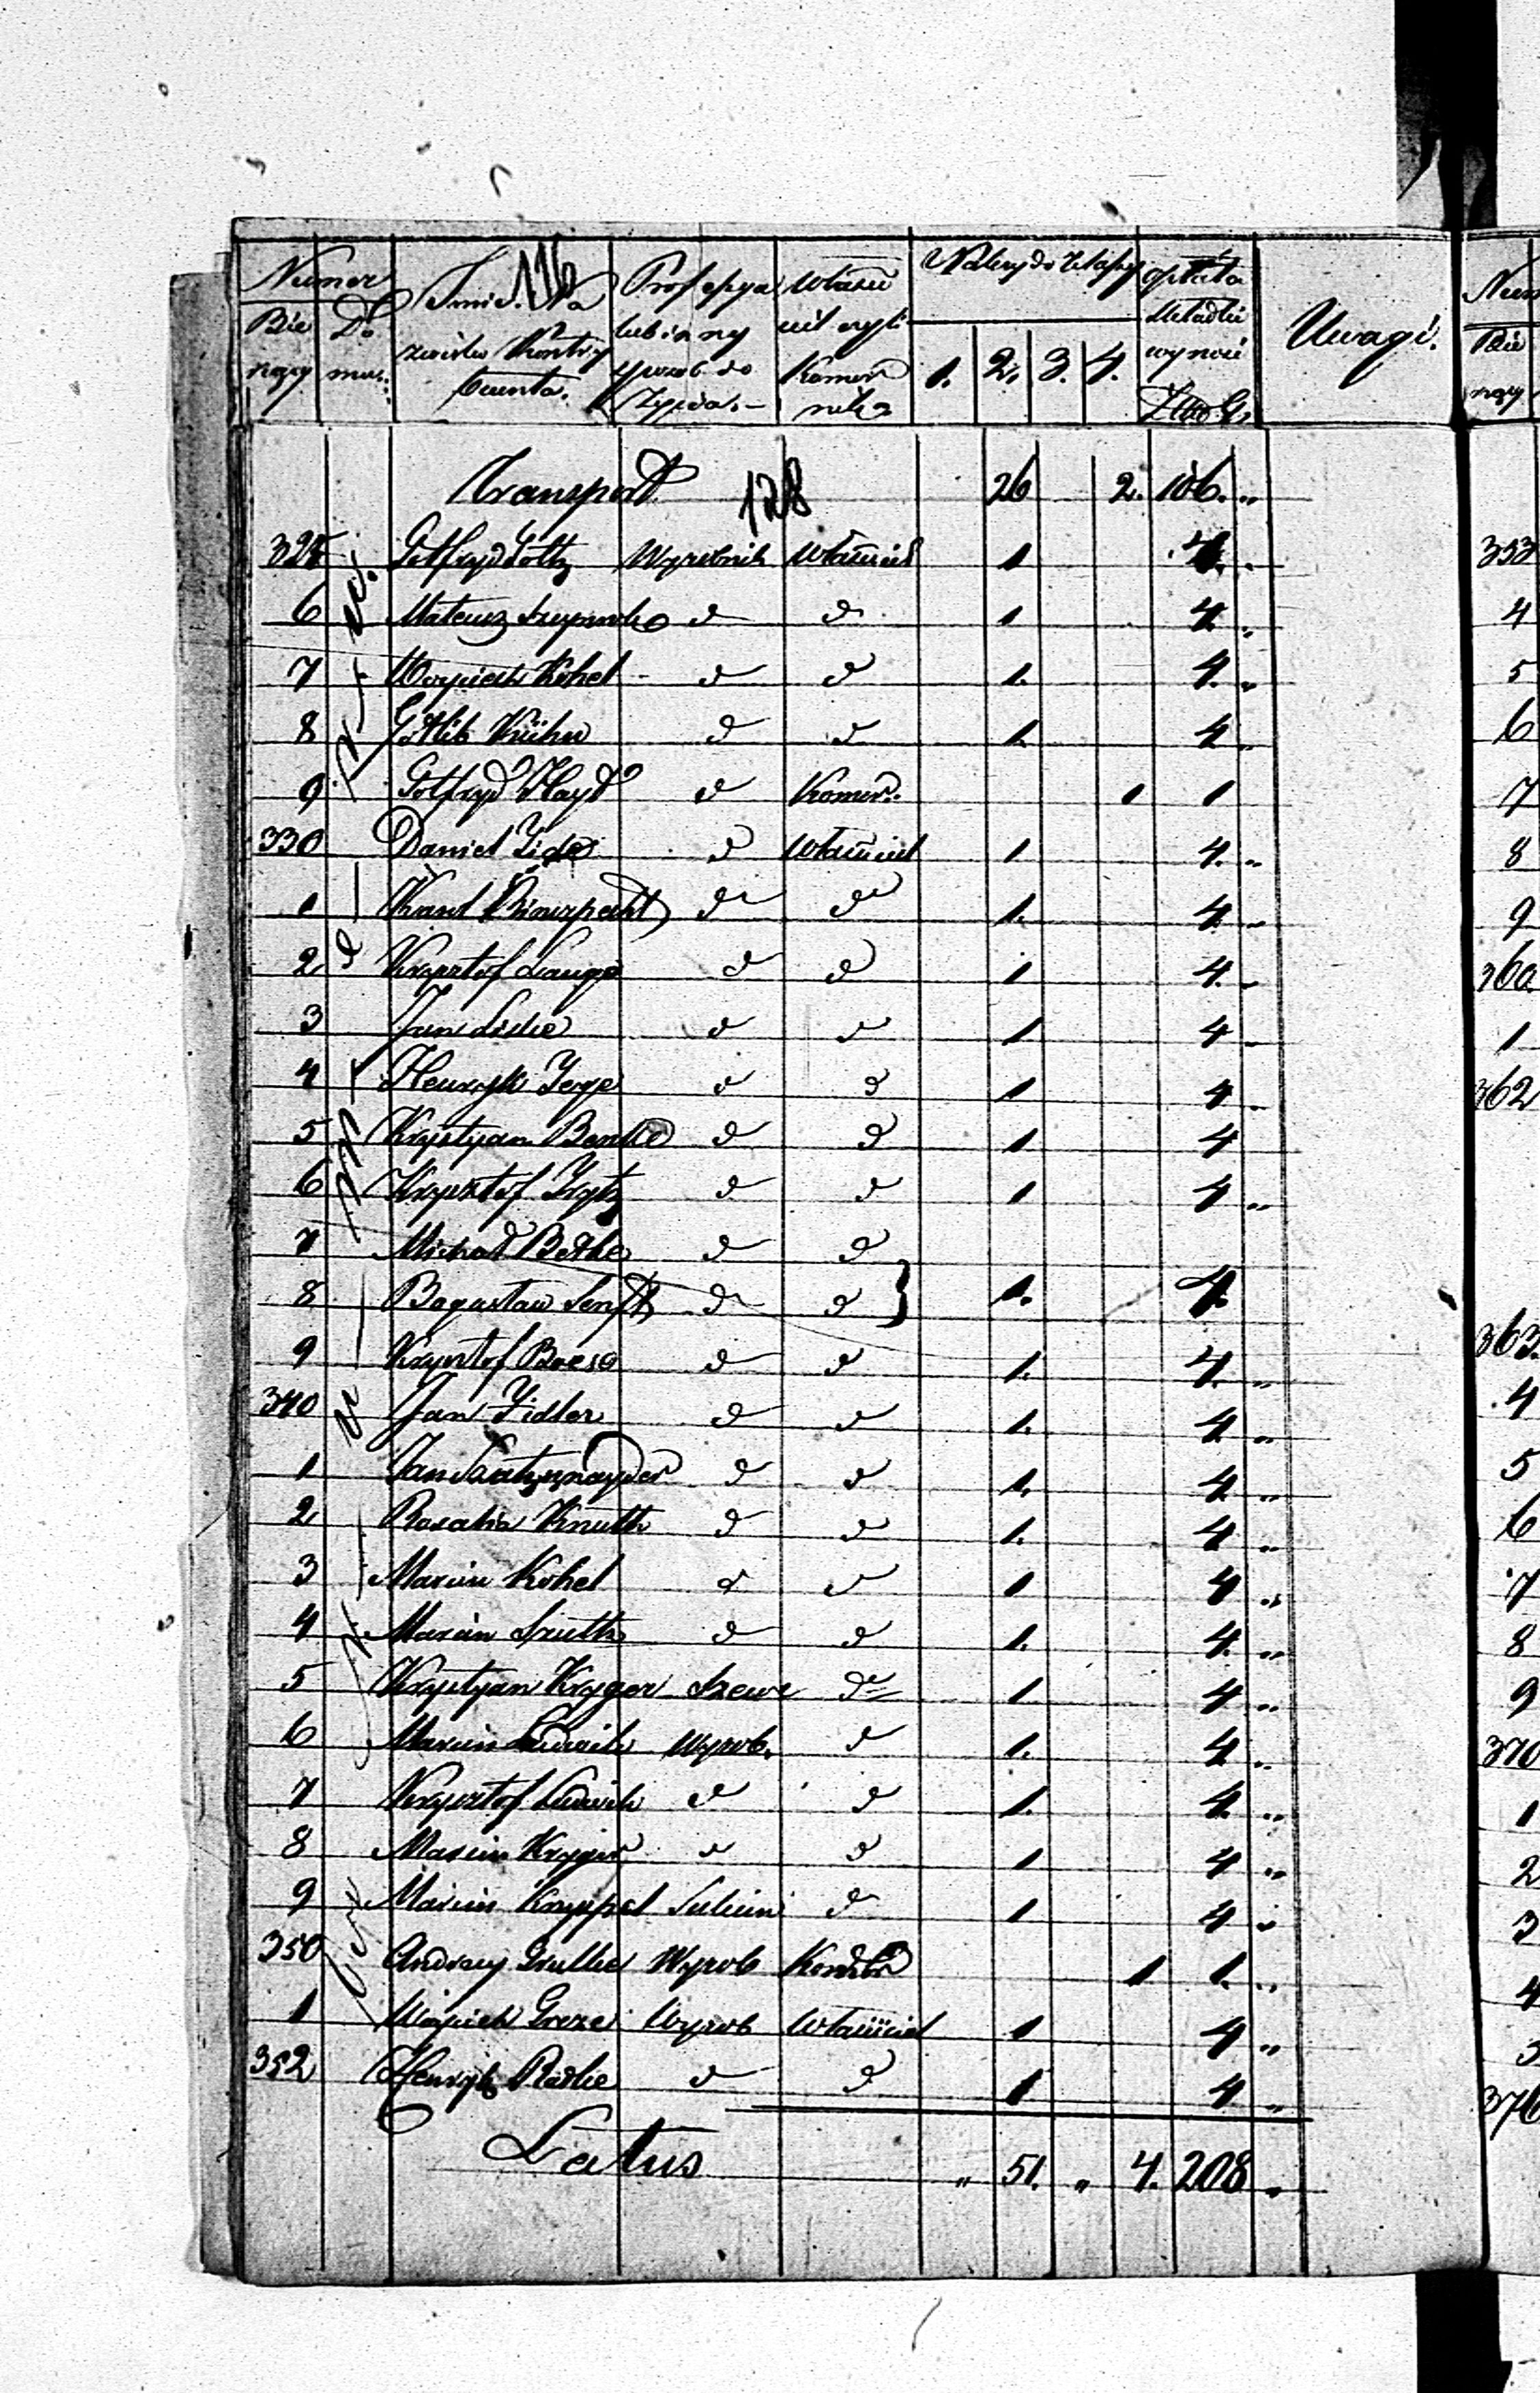 Numer
Bie
żący
Do
mu
116
Imie Na
zwisko Kontry
buenta.
Professya
lub inny
sposob do
Życia.-
Właści
ciel czyli
Komor
nik
Należy do Klassy
1. 2. 3. 4.
Opłata
składki
wynosi
Uwagi.
Transport 128 26 2. 106. "
325 Gotfryd Goltz Wyrobnik Właściciel 1 4. "
6 Mateusz d d 1 4 "
7 Woyciech Kohel d d 1. 4. "
8 Gotlib Kühn d d 1. 4 "
9 Gotfryd Hayd d Komor. 1 1
330 Daniel d Właściciel 1 4. "
1 d d 1. 4. "
2 Krysztof Lange d d 1 4. "
3 Jan d d 1 4 "
4 Henryk d d 1 4 "
5 Krystyan Benke d d 1 4
6 Krysztof d d 1 4 "
7 Michał Bethke d d
8 Bogusław Senft d d } 1. 4.
9 Krysztof Boese d d 1. 4. "
340 Jan Zidler d d 1. 4 "
1 Jan d d 1. 4 "
2 Rozalia Knuth d d 1. 4 "
3 Marcin Kohel d d 1 4 "
4 Marcin Szulth d d 1. 4. "
5 Krystyan Kryger Szewc d 1 4 "
6 Marcin Ludwik Wyrob. d 1. 4 "
7 Krysztof Ludwik d d 1. 4. "
8 Marcin Kryger d d 1 4 "
9 Marcin Knyppel d 1 4 "
350 Andrzey Grulke Wyrob Komor 1 1. "
1 Woyciech Wyrob Właściciel 1 4 "
352 Henryk Radke d d 1 4 "
Latus " 51. " 4. 208 "
Num
Bie
żący
353
4
5
6
7
8
9
360.
1
362
363.
4
5
6
7
8
9
370
1
2
3
4
5
376